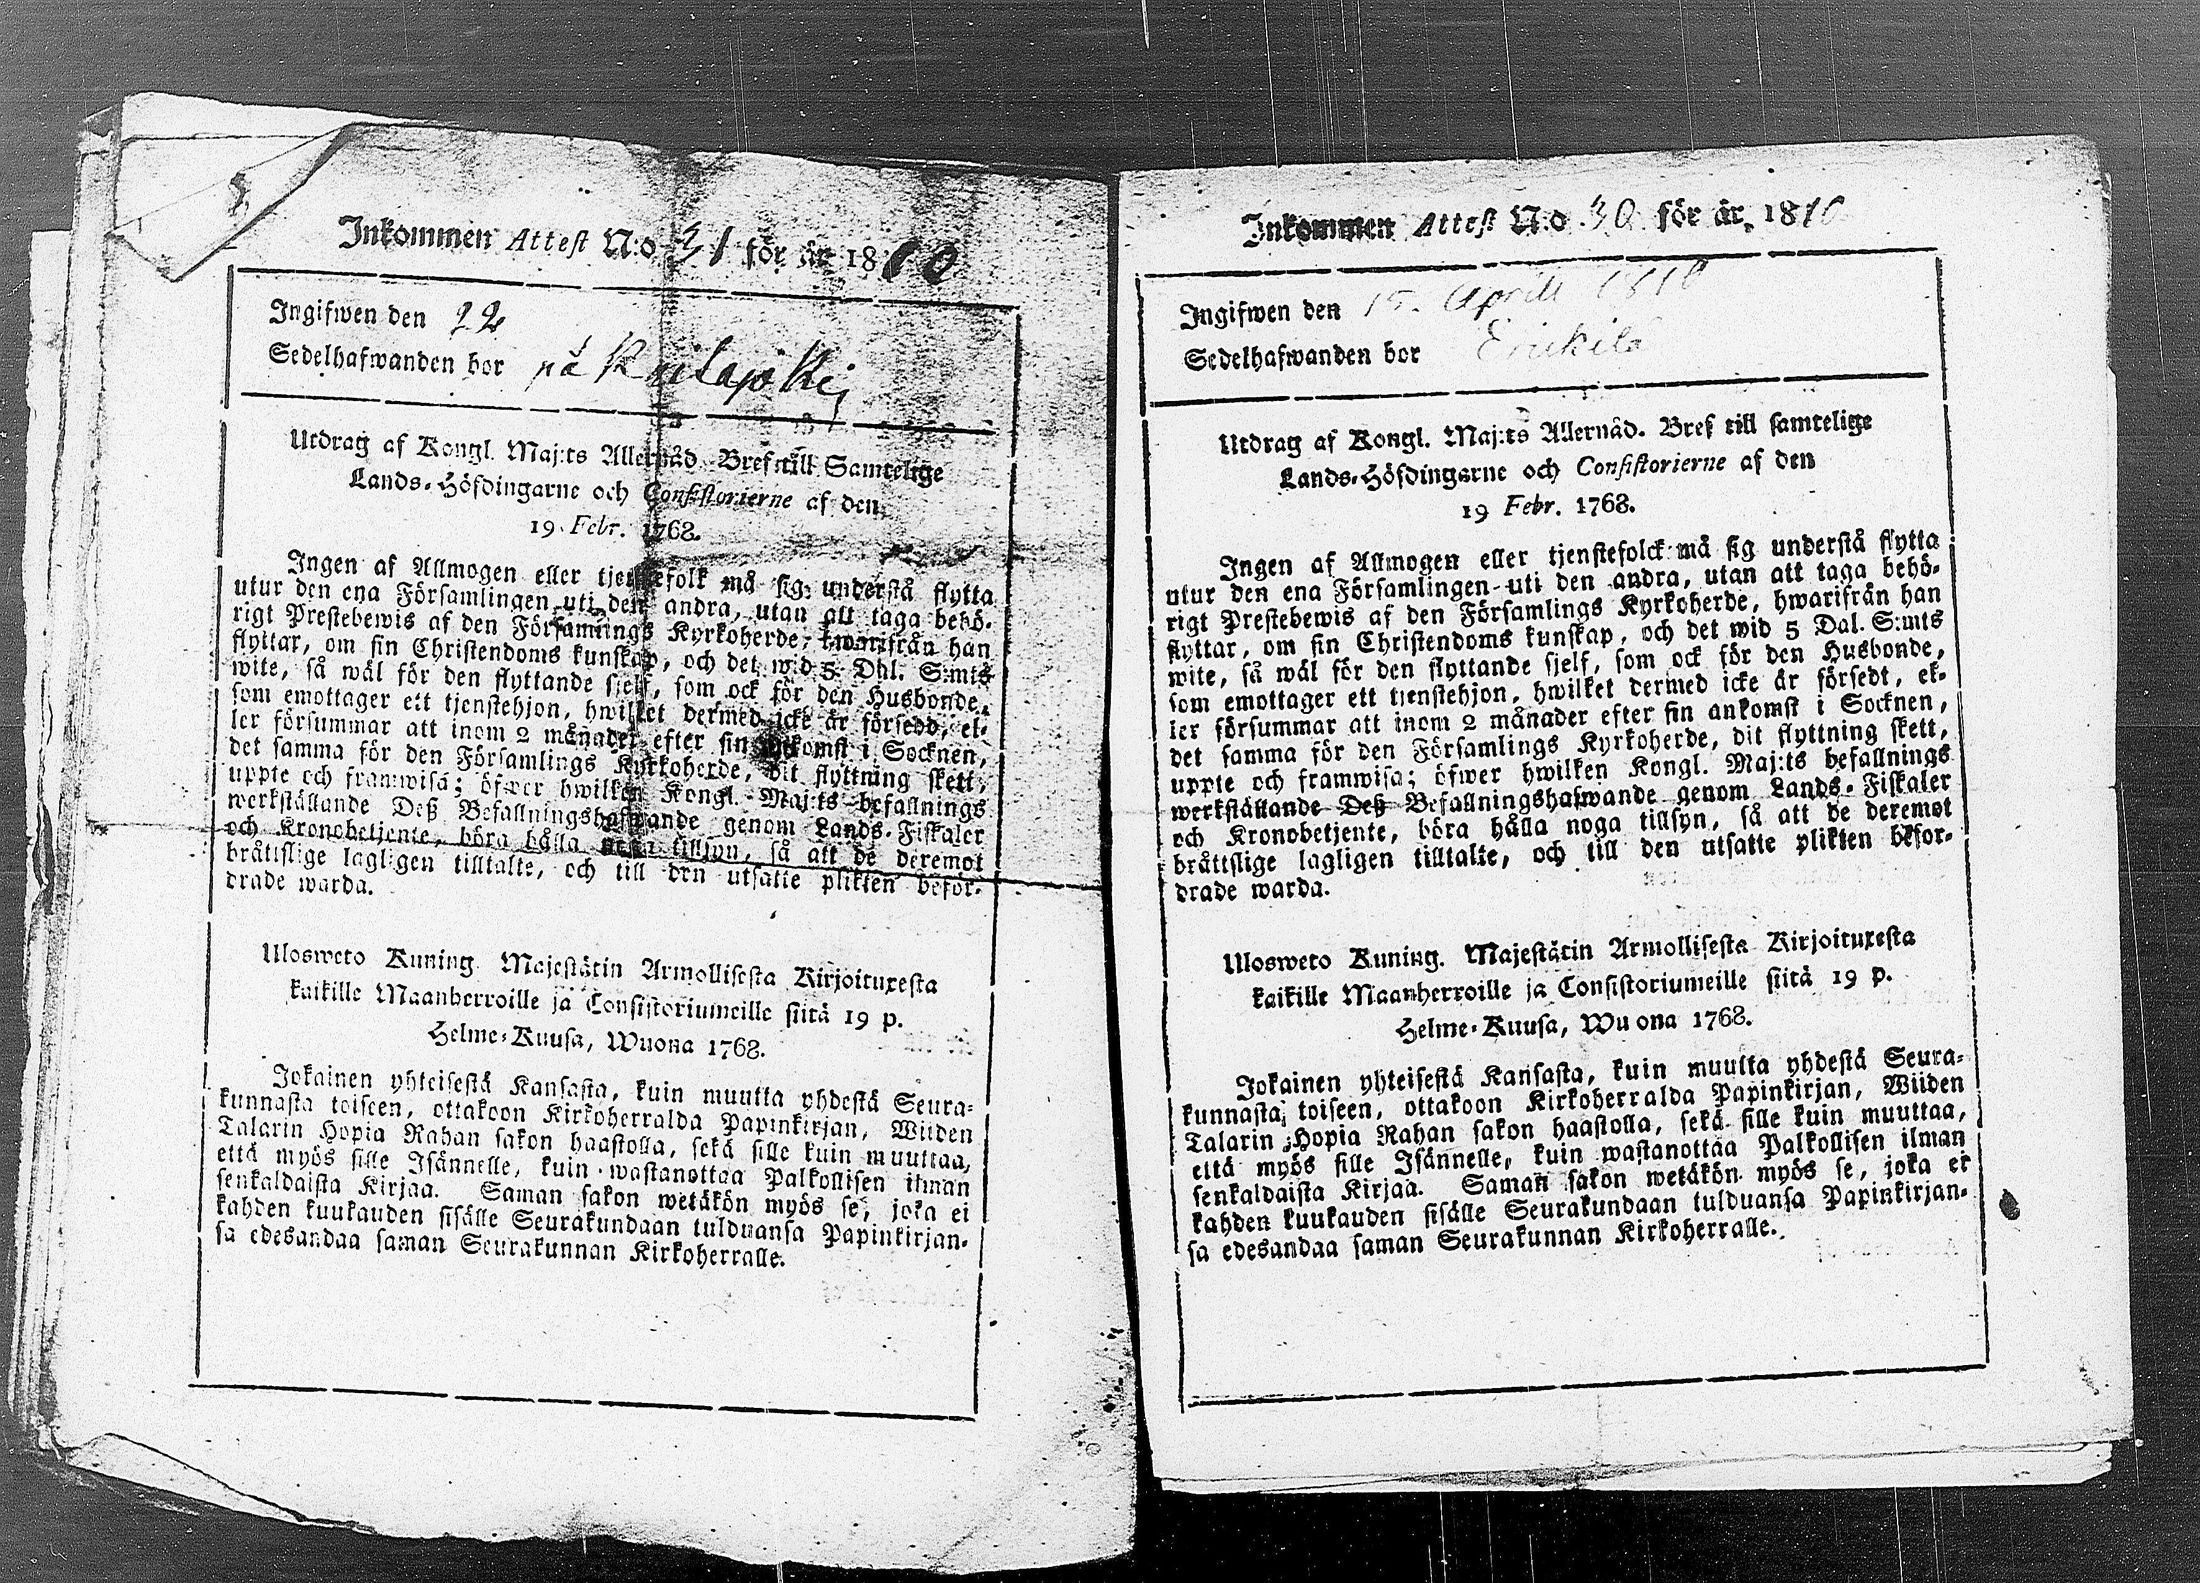 Inkommen Attest N:o 31 för år 1810
Ingifwen den 22
Sedelhafwanden bor på
Utdrag af Kongl. Maj:ts Allernåd. Bref till Samtelige
Lands-Höfdingarne och Consistorierne af den
19 Febr. 1768.
Ingen af Allmogen eller tjenstefolk må sig understå flytta
utur den ena Församlingen uti den andra, utan att taga behö-
rigt Prestebewis af den Församlings Kyrkoherde, hwarifrån han
flyttar, om sin Christendoms kunskap, och det wid 5 Dal. S:mts
wite, så wäl för den flyttande sjelf, som ock för den Husbonde,
som emottager ett tjenstehjon, hwilket dermed icke är försedd, el-
ler försummar att inom 2 månader efter sin ankomst i Socknen,
det samma för den Församlings Kyrkoherde, dit flyttning skett,
uppte och framwisa; öfwer hwilken Kongl. Maj:ts befallnings
werkställande Deß Befallningshafwande genom Lands-Fiskaler
och Kronobetjente, böra hålla noga tillsyn, så att de deremot
bråttslige lagligen tilltalte, och till den utsatte plikten beför-
drade warda.
Ulosweto Kuning. Majestätin Armollisesta Kirjoituxesta
kaikille Maanherroille ja Consistoriumeille siitä 19 p.
Helme-Kuusa, Wuona 1768.
Jokainen yhteisestä Kansasta, kuin muutta yhdestä Seura-
kunnasta toiseen, ottakoon Kirkoherralda Papinkirjan, Wiiden
Talarin Hopia Rahan sakon haastolla, sekä sille kuin muuttaa,
että myös sille Isännelle, kuin wastanottaa Palkollisen ilman
senkaldaista Kirjaa. Saman sakon wetäkön myös se, joka ei
kahden kuukauden sisälle Seurakundaan tulduansa Papinkirjan-
sa edesandaa saman Seurakunnan Kirkoherralle.
Inkommen Attest N:o 30 för år 1810
Ingifwen den 15. Aprill 1810
Sedelhafwanden bor Erickilä
Utdrag af Kongl. Maj:ts Allernåd. Bref till samtelige
Lands-Höfdingarne och Consistorierne af den
19 Febr. 1768.
Ingen af Allmogen eller tjenstefolck må sig understå flytta
utur den ena Församlingen uti den andra, utan att taga behö-
rigt Prestebewis af den Församlings Kyrkoherde, hwarifrån han
flyttar, om sin Christendoms kunskap, och det wid 5 Dal. S:mts
wite, så wäl för den flyttande sjelf, som ock för den Husbonde,
som emottager ett tjenstehjon, hwilket dermed icke är försedt, el-
ler försummar att inom 2 månader efter sin ankomst i Socknen,
det samma för den Församlings Kyrkoherde, dit flyttning skett,
uppte och framwisa; öfwer hwilken Kongl. Maj:ts befallnings
werkställande Deß Befallningshafwande genom Lands-Fiskaler
och Kronobetjente, böra hålla noga tillsyn, så att de deremot
bråttslige lagligen tilltalte, och till den utsatte plikten befor-
drade warda.
Ulosweto Kuning. Majestätin Armollisesta Kirjoituxesta
kaikille Maanherroille ja Consistoriumeille siitä 19 p.
Helme-Kuusa, Wuona 1768.
Jokainen yhteisestä Kansasta, kuin muutta yhdestä Seura-
kunnasta toiseen, ottakoon Kirkoherralda Papinkirjan, Wiiden
Talarin Hopia Rahan sakon haastolla, sekä sille kuin muuttaa,
että myös sille Isännelle, kuin wastanottaa Palkollisen ilman
senkaldaista Kirjaa. Saman sakon wetäkön myös se, joka ei
kahden kuukauden sisälle Seurakundaan tulduansa Papinkirjan-
sa edesandaa saman Seurakunnan Kirkoherralle.